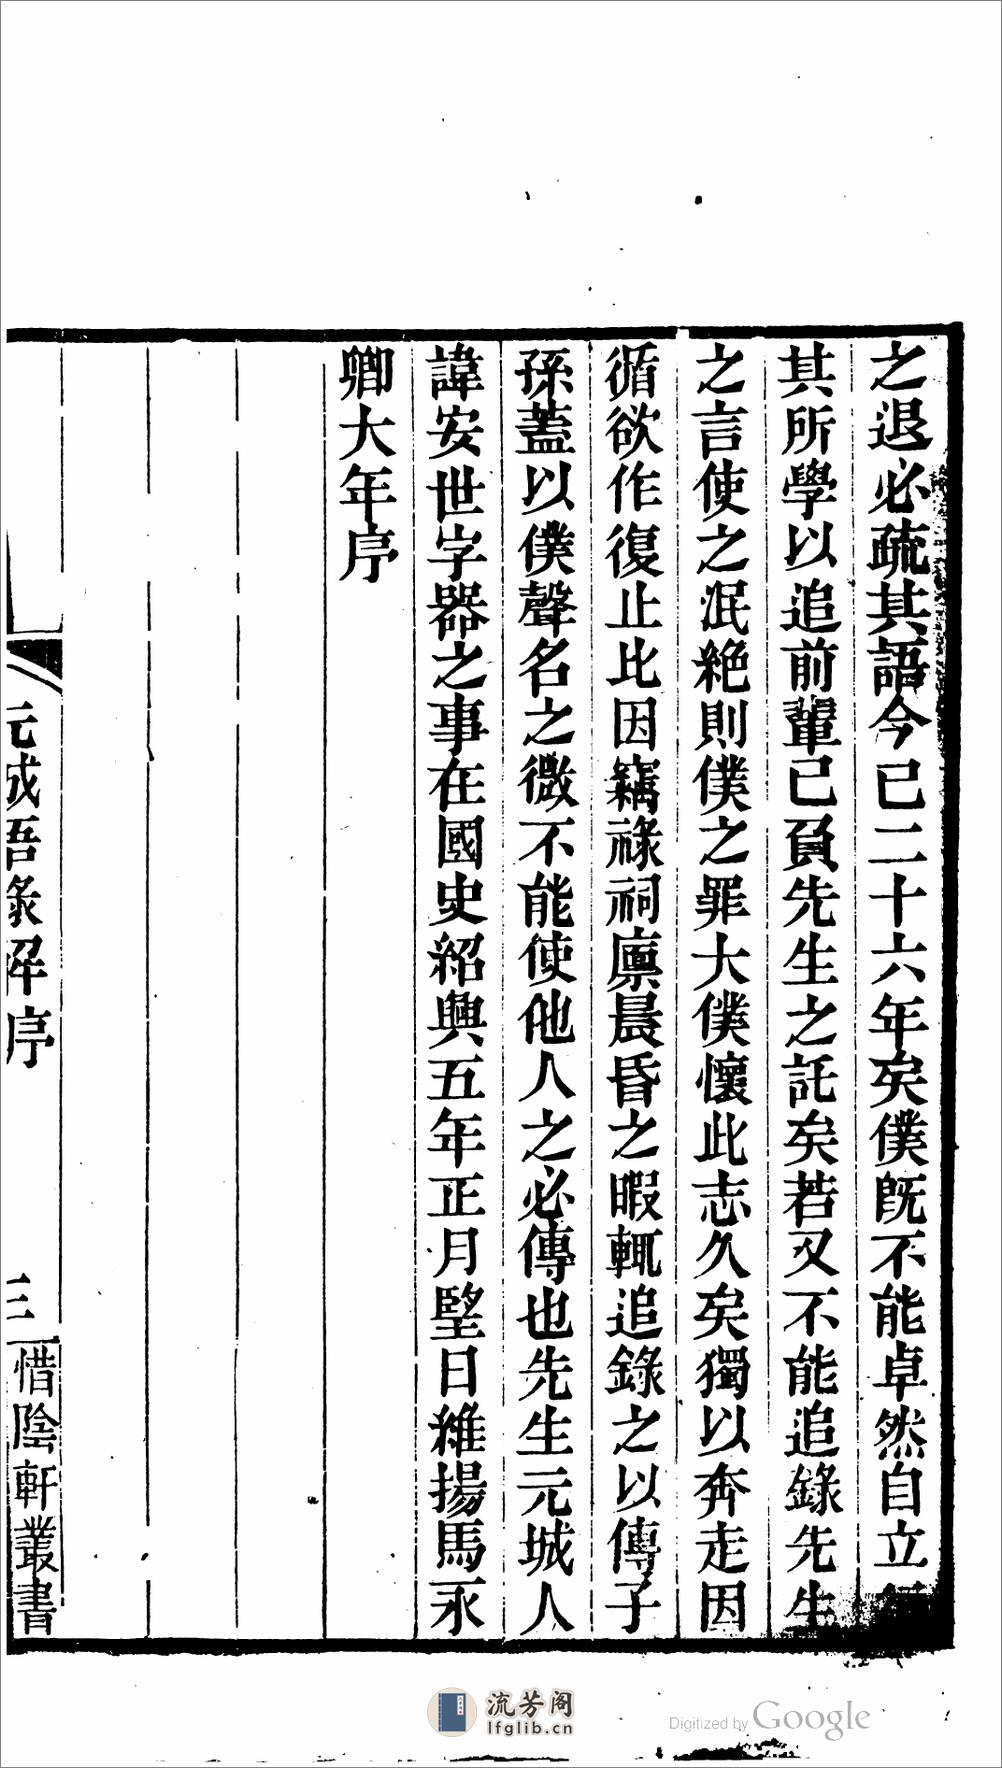 之退必疏其語今已二十六年矣僕旣不能卓然自立行
其所學以追前輩已負先生之託矣若又不能追錄先生
之言使之泯絶則僕之罪大僕懷此志久矣獨以奔走因
循欲作復止比因竊祿祠廩晨昏之暇輒追錄之以傳子
孫蓋以僕聲名之微不能使他人之必傳也先生元城人
諱安世字器之事在國史紹興五年正月朢日維揚馬永
卿大年序
元城語錄解序
三
惜陰軒叢書
流芳阁
lfglib.cn
Digitized by Google